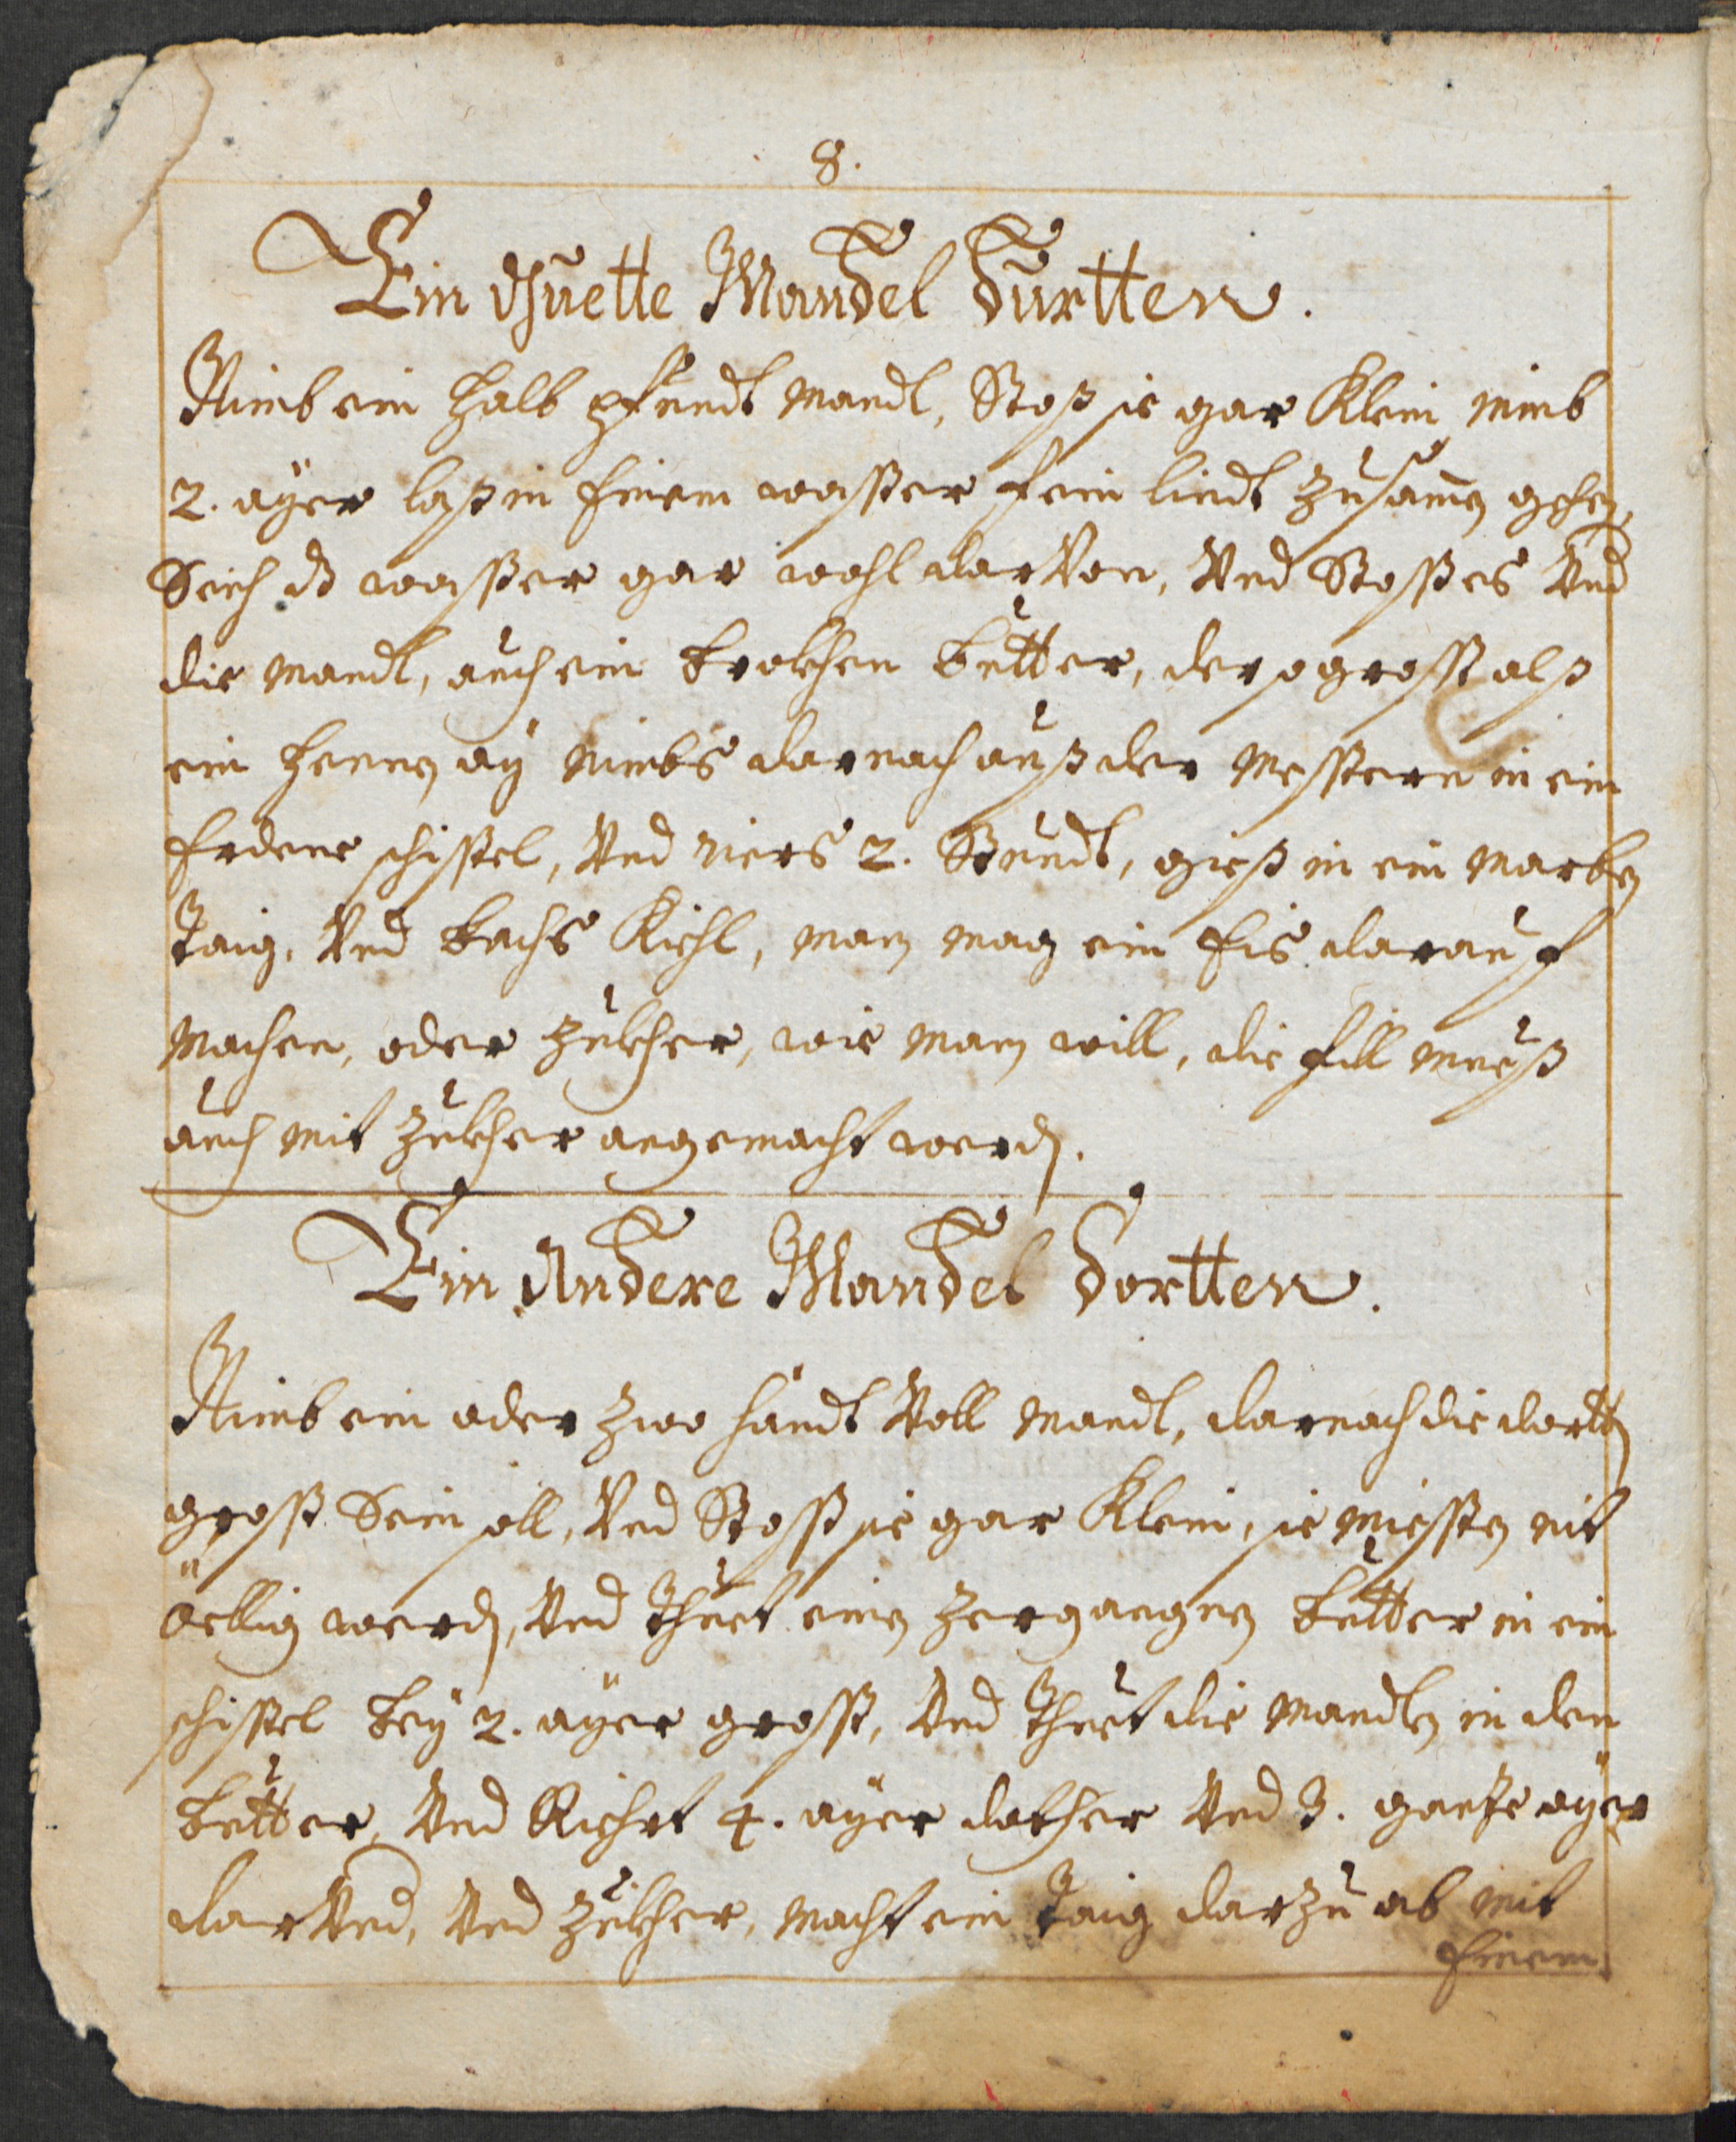 8.
Ein Guette Mandel Durtten.
Nimb ein halb pfundt mandl, Stoß sie gar Klein nimb
2. ayer laß in einem waßer fein lindt zusamen gehen,
Seich ds waßer gar wohl darVon, Vnd Stoß es Vnd
die mandl, auch ein brokhen butter, der so groß alß
ein hennen ay nimbs darnach auß der Messern in ein
Erdene schißel, Vnd riers 2. Stundt, gieß in ein marben
Taig, Vnd bachs Kiehl, man mag ein Eis darauf
machen, oder zukher, wie man will, die fill mueß
auch mit zukher angemacht werden.
Ein Andere Mandel Dortten.
Nimb ein oder zwo händt Voll mandl, darnach die dortten
groß Sein soll, Vnd Stoß sie gar Klein, sie mießen nit
öellig werden, Vnd Thuet einen zergangnen butter in ein
schißel bey 2. ayer groß, Vnd Thuet die mandlen in den
butter, Vnd Riehrt 4. ayer dother Vnd 3. ganze ayer
darVnd, Vnd zukher, macht ein Taig darzu ab mit
Einem